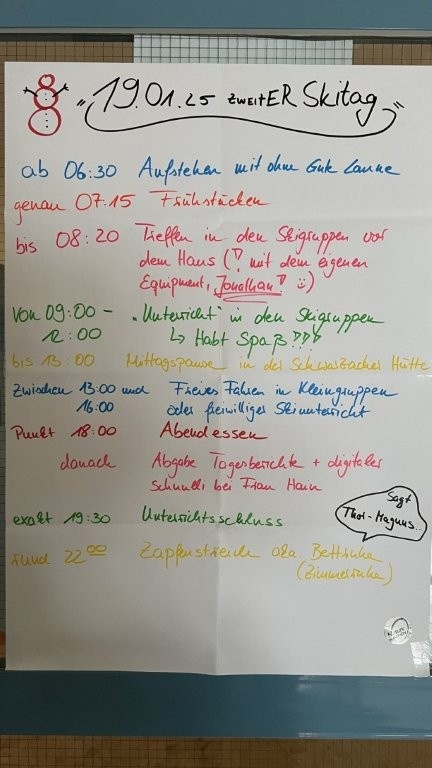 "19.01.25 zweitER Skitag"
ab 06:30 Aufstehen mit ohne Gute Laune
genau 07:15 Frühstücken
bis 08:20 Treffen in den Skigruppen vor
dem Haus (! mit dem eigenen
Equipment, Jonathan! :))
von 09:00 - "Unterricht" in den Skigruppen
12:00 ↳ Habt Spaß!!!
bis 13:00 Mittagspause in der Schwarzacher Hütte
Zwischen 13:00 und Freies Fahren in Kleingruppen
16:00 oder freiwilliger Skiunterricht
Punkt 18:00 Abendessen
danach Abgabe Tagesberichte + digitaler
bei Frau
Sagt
Thor-Magnus.
exakt 19:30 Unterrichtsschluss
rund 22 00 Zapfenstreich aka. Bettruhe
(Zimmerruhe)